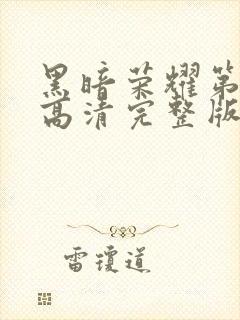 黑暗荣耀第
高清完整版
雷琼道